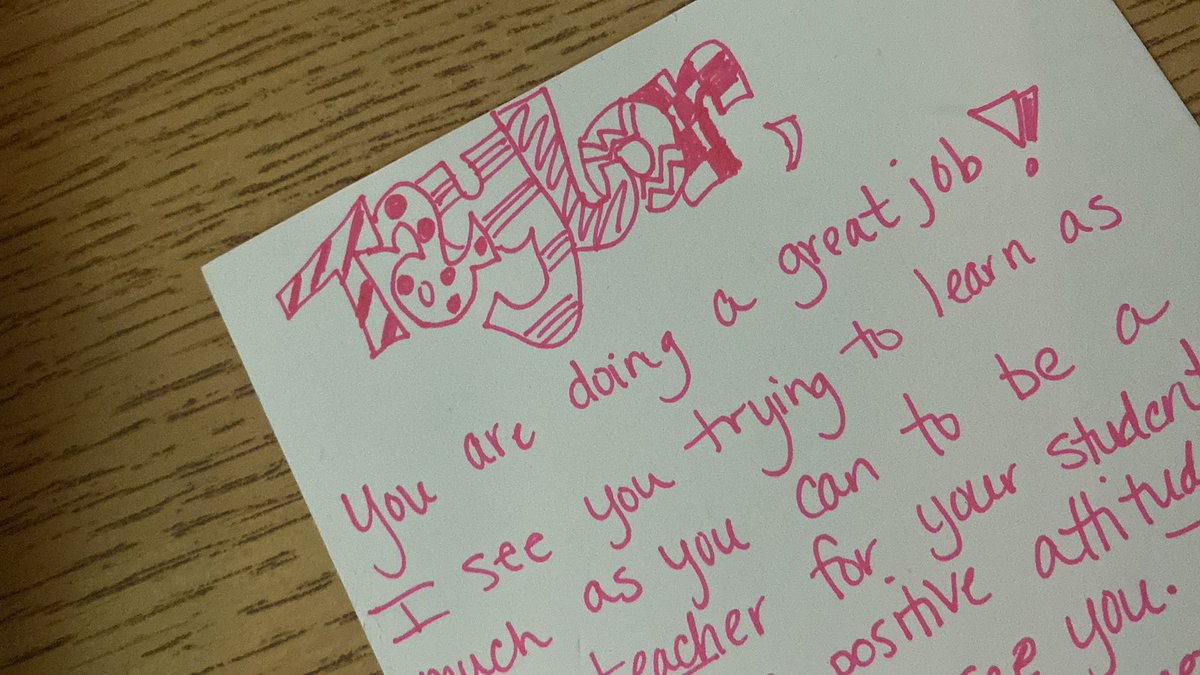 Taylor,
You are doing a great job!!
I see you trying to learn as
much as you can to be a
teacher for your student
positive attitud
see you.